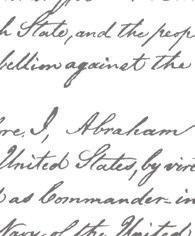 State, and the
against the
I, Abraham
United States, by
as Commander-in
Navy, of the United